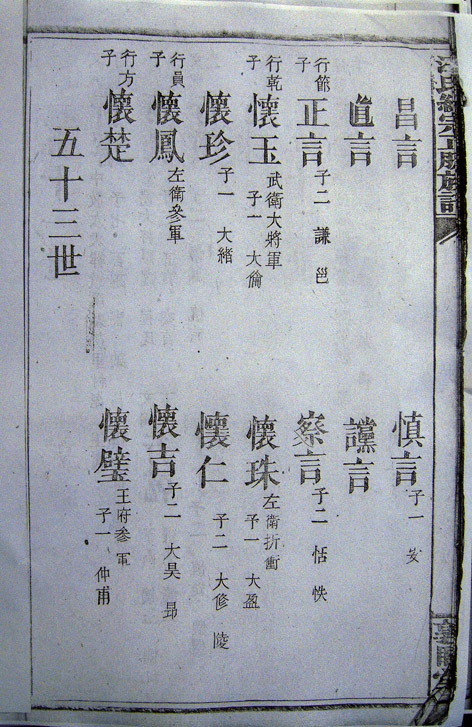 昌言 慎言 子一 安
直言 讜言
行節子 正言 子二 謙 邕 察言 子二 恬
行乾子 懷玉 武衛大將軍 子一 大倫 懷珠 左衛折衝 子一 大盈
懷珍 子一 大緒 懷仁 子二 大修 陵
行員子 懷鳳 左衛參軍 懷吉 子二 大昊 昂
行方子 懷楚 懷璧 王府參軍 子一 仲甫
五十三世